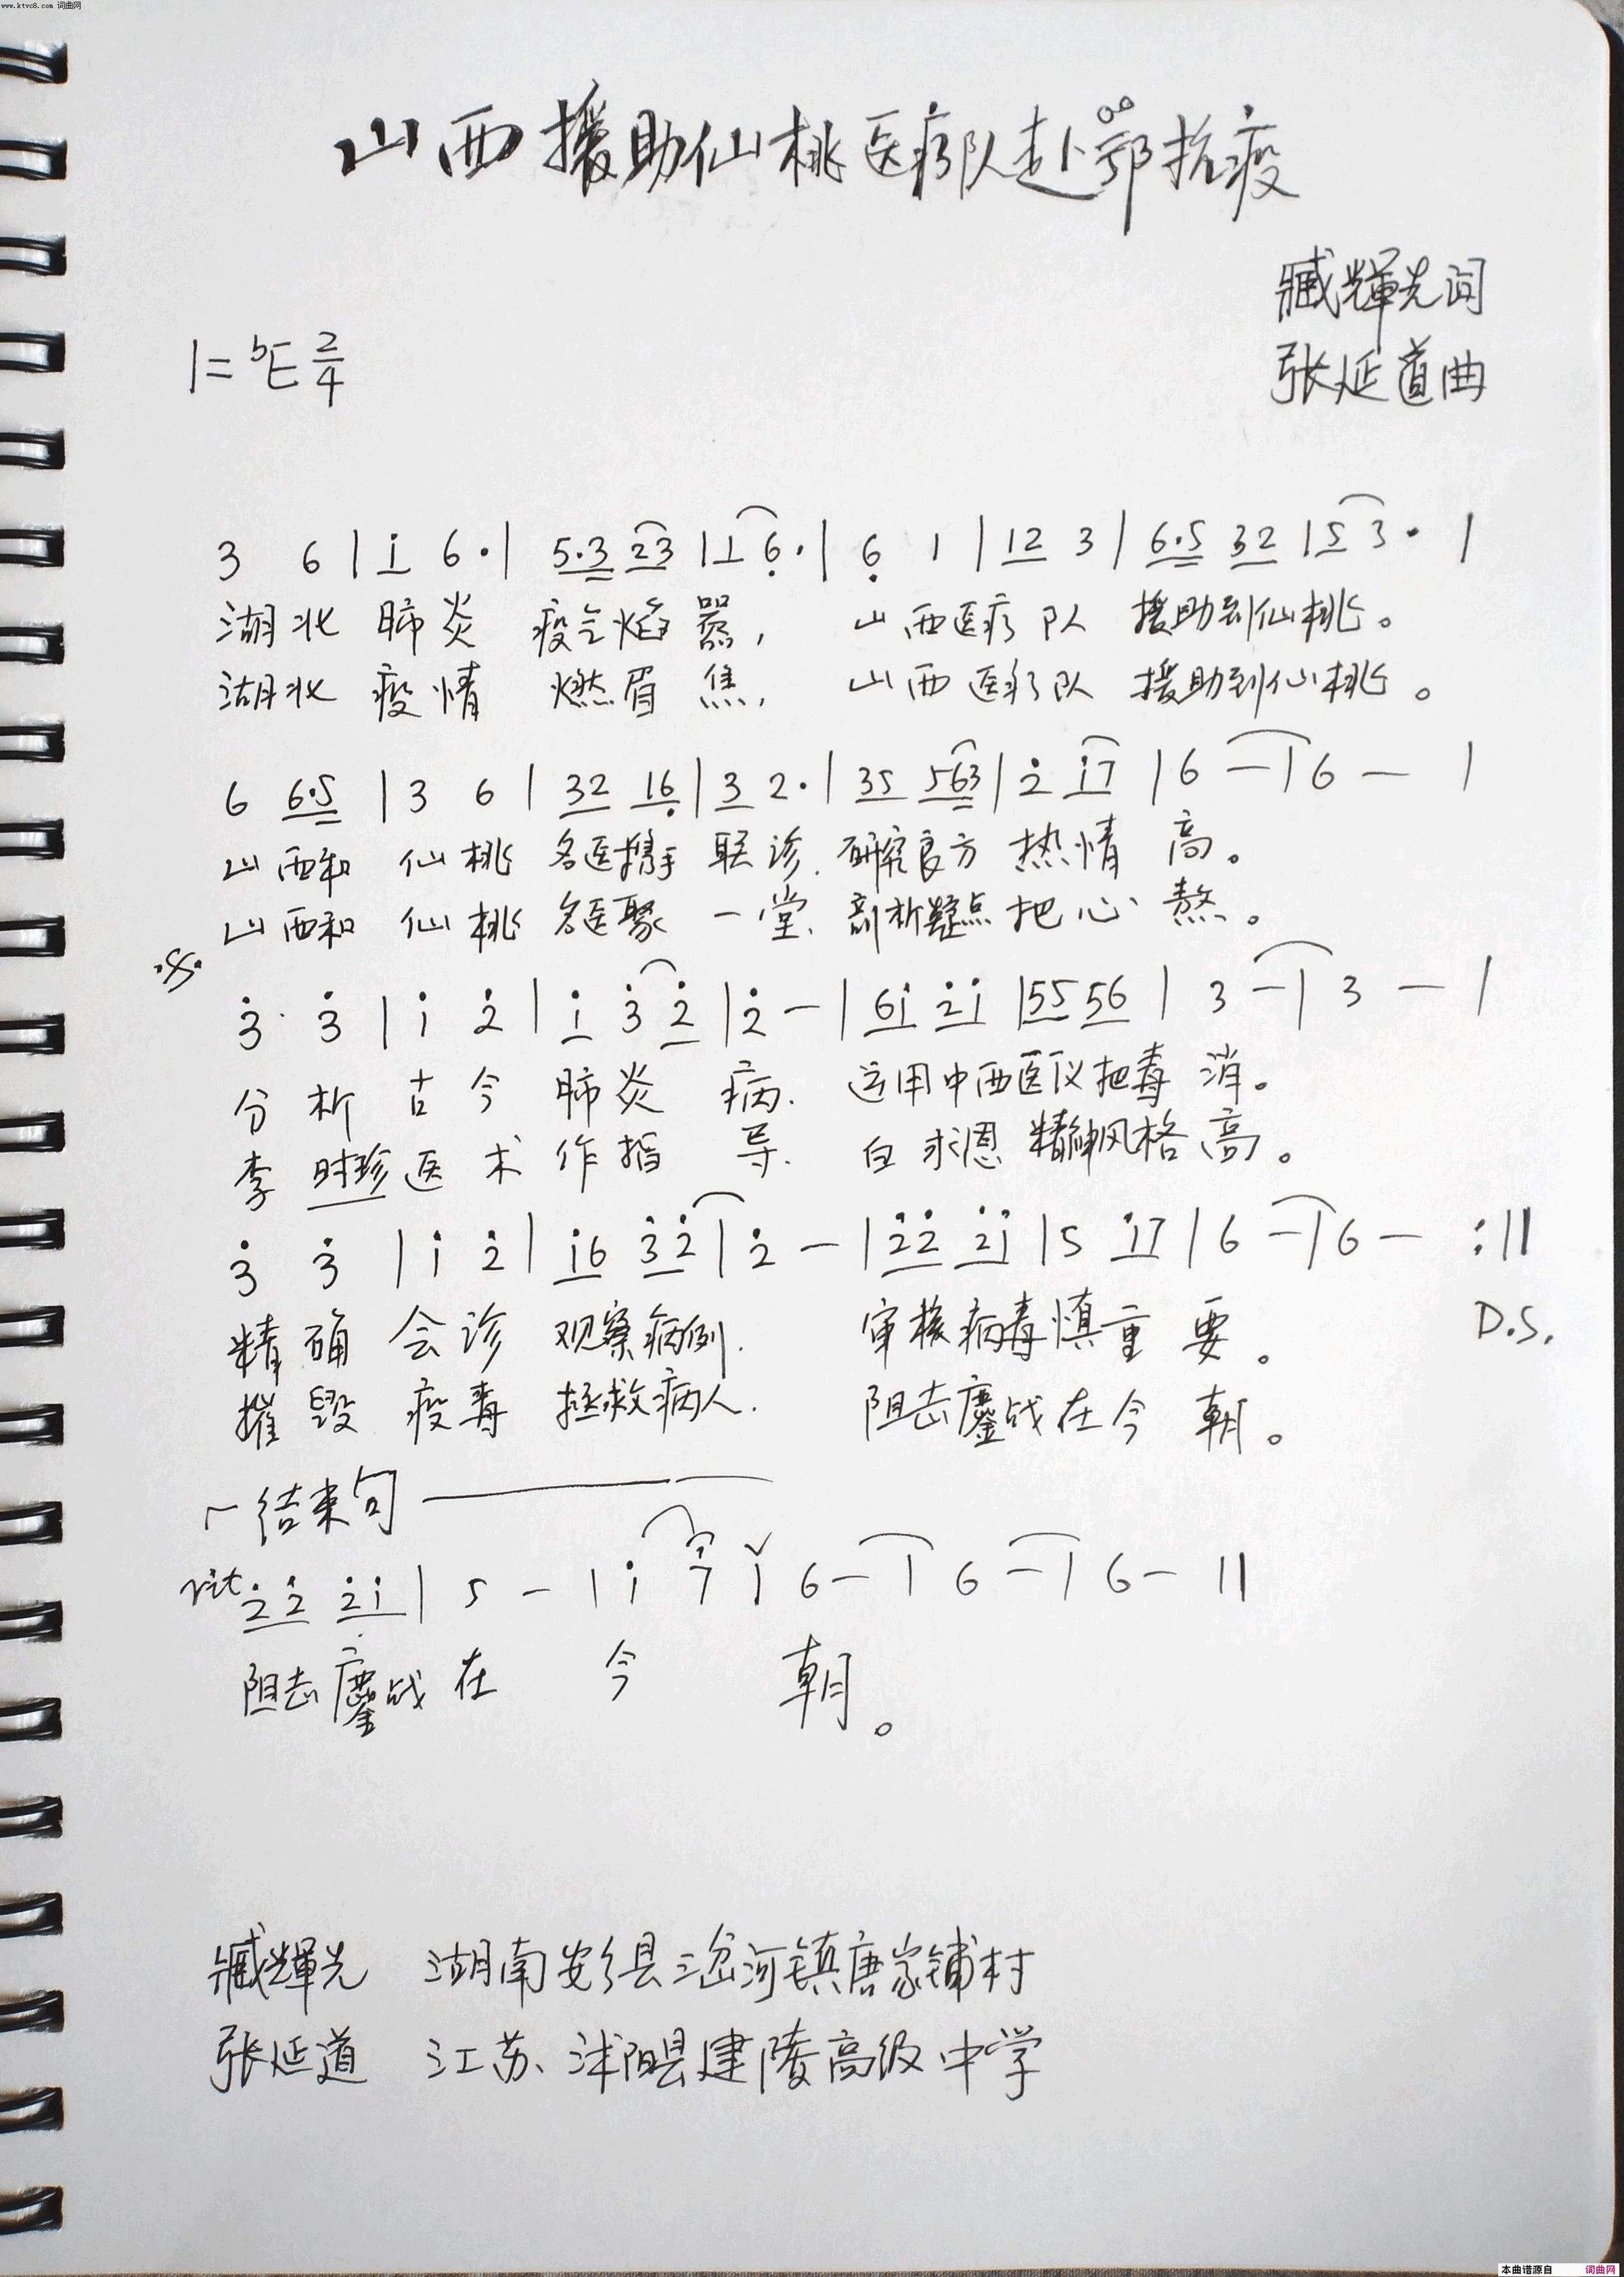 www.ktvc8.com 词曲网
山西援助仙桃医疗队赴鄂抗疫
臧輝光词
1=ᵇE 2/4
张延道曲
3 6 | i 6· | 5·3 23 | 1 6· | 6 1 | 12 3 | 6·5 32 | 5 3· |
湖北 肺炎 疫气焰嚣, 山西医疗队 援助到仙桃。
湖北 疫情 燃眉焦, 山西医疗队 援助到仙桃。
6 6·5 | 3 6 | 32 16 | 3 2· | 35 563 | 2 i7 | 6 - | 6 - |
山西和 仙桃 名医携手 联诊. 研究良方 热情 高。
山西和 仙桃 名医聚 一堂、剖析疑点 把心 熬。
3 3 | i 2 | i 3 2 | 2 - | 6i 2i | 55 56 | 3 - | 3 - |
分析古今 肺炎 病. 运用中西医仪把毒 消。
李时珍医术 作指 导. 白求恩 精神风格 高。
3 3 | i 2 | i6 32 | 2 - | 22 2i | 5 i7 | 6 - | 6 - :||
精确会诊 观察病例. 审核病毒慎重 要。 D.S.
摧毁 疫毒 拯救病人. 阻击鏖战在今 朝。
结束句
rit 22 2i | 5 - | i 7 | 6 - | 6 - | 6 - ||
阻击鏖战 在 今 朝。
臧輝光 湖南安乡县三岔河镇唐家铺村
张延道 江苏、沭阳县建陵高级中学
本曲谱源自 词曲网